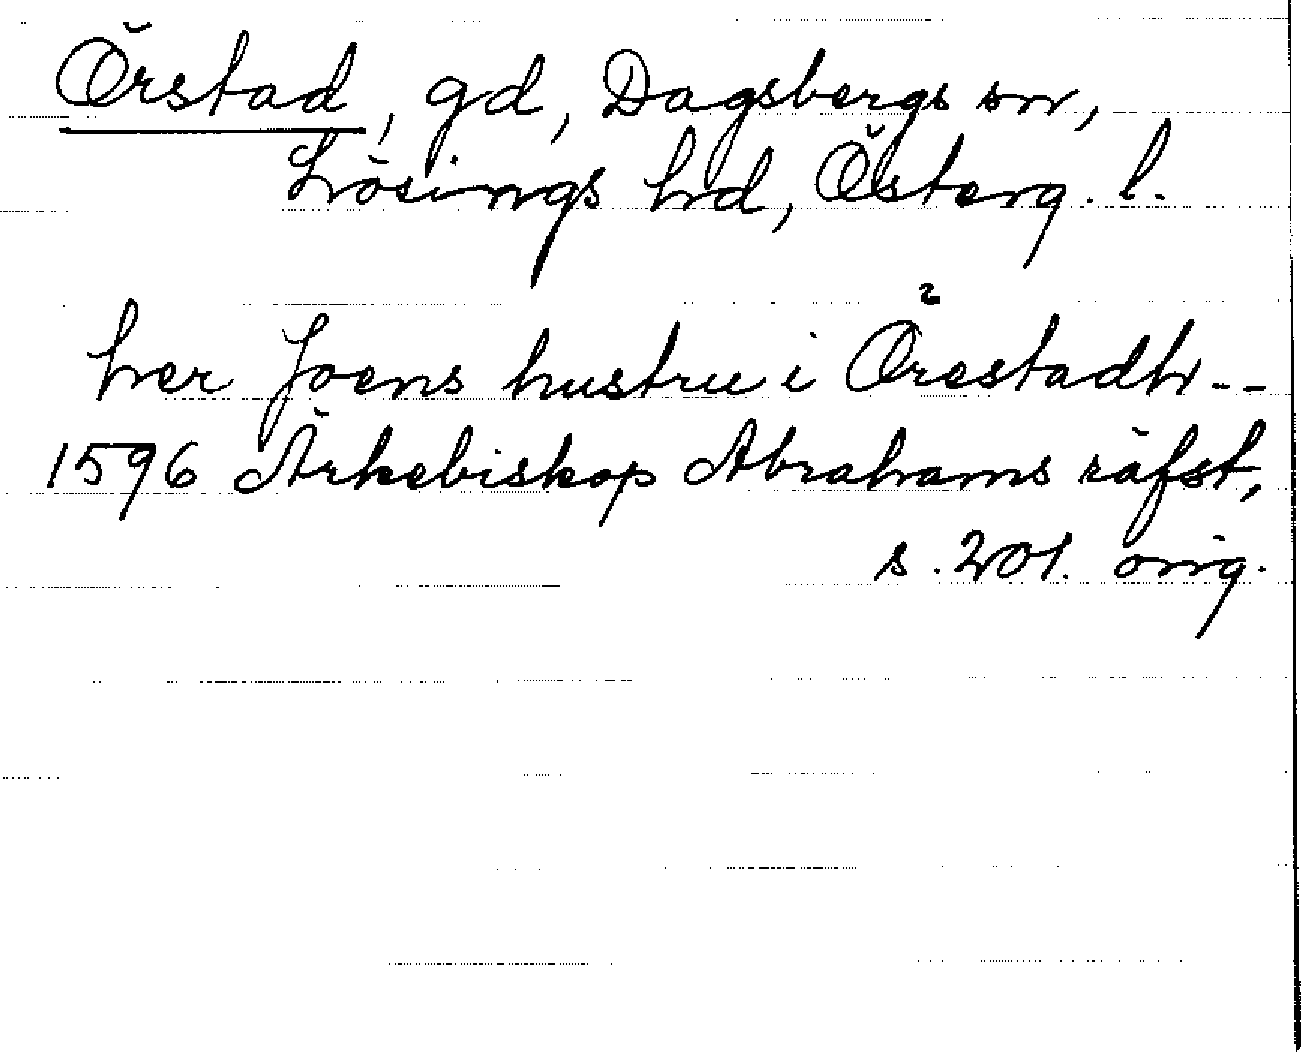 Örstad, gd, Dagsbergs sn,
Lösings hd, Österg. l.
her Joens hustru i Örestadh --
1596 Ärkebiskop Abrahams räfst,
s. 201. orig.